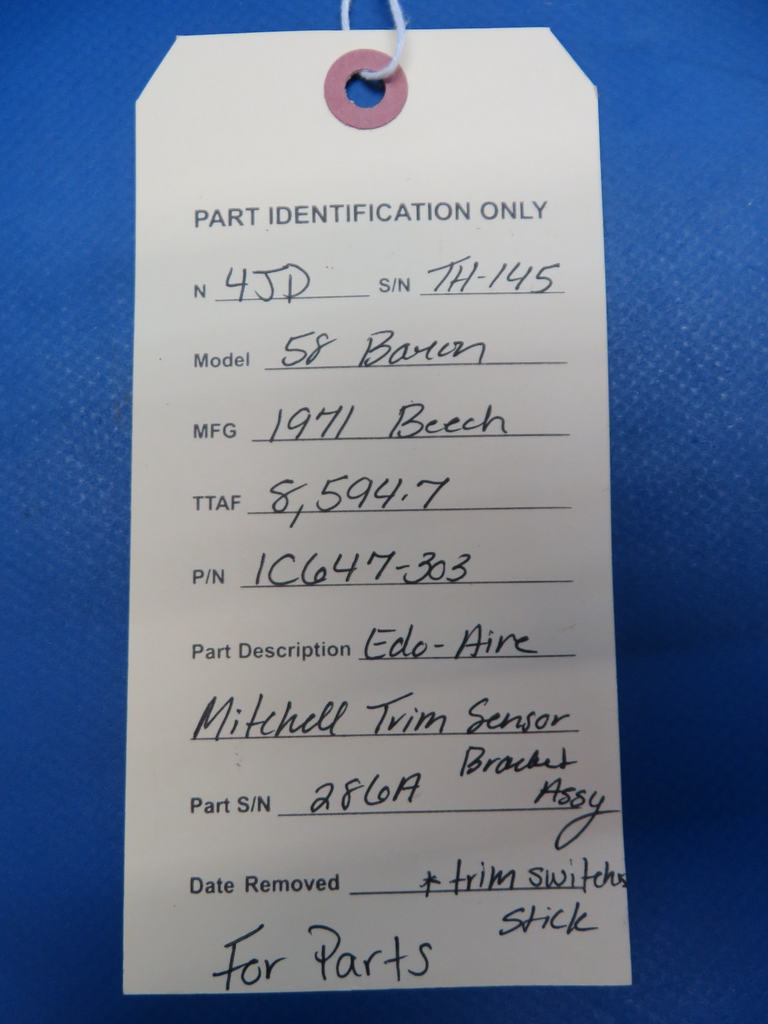 PART IDENTIFICATION ONLY
N 4JD S/N TH-145
Model 58 Baron
MFG 1971 Beech
TTAF 8,594.7
P/N 1C647-303
Part Description Edo-Aire
Mitchell Trim Sensor
Bracket
Part S/N 286A Assy
Date Removed * trim switches
stick
For Parts